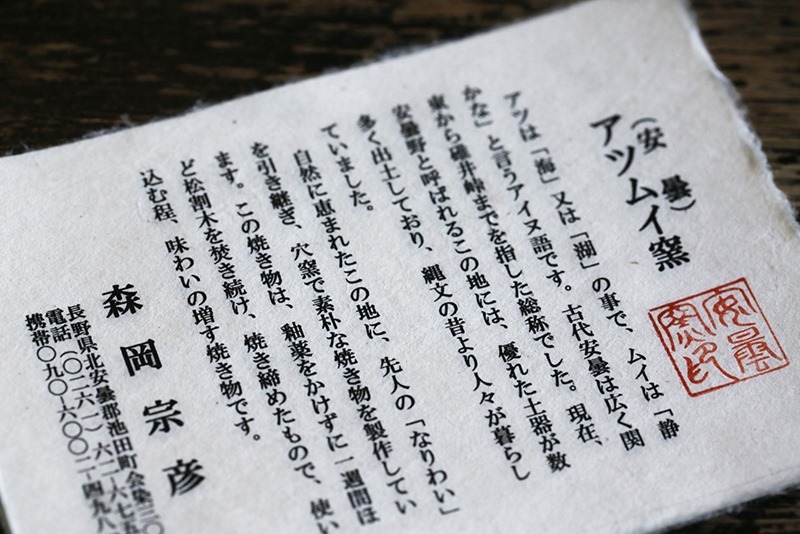 （安曇）
アツムイ窯
アツは「海」又は「湖」の事で、ムイは「静
かな」と言うアイヌ語です。古代安曇は広く関
東から碓井峠までを指した総称でした。現在、
安曇野と呼ばれるこの地には、優れた土器が数
多く出土しており、縄文の昔より人々が暮らし
ていました。
自然に恵まれたこの地に、先人の「なりわい」
を引き継ぎ、穴窯で素朴な焼き物を製作してい
ます。この焼き物は、釉薬をかけずに一週間ほ
ど松割木を焚き続け、焼き締めたもので、使い
込む程、味わいの増す焼き物です。
森岡宗彦
長野県北安曇郡池田町会染三〇
電話（〇二六一）六二-六七五
携帯〇九〇-六〇〇二-四九八